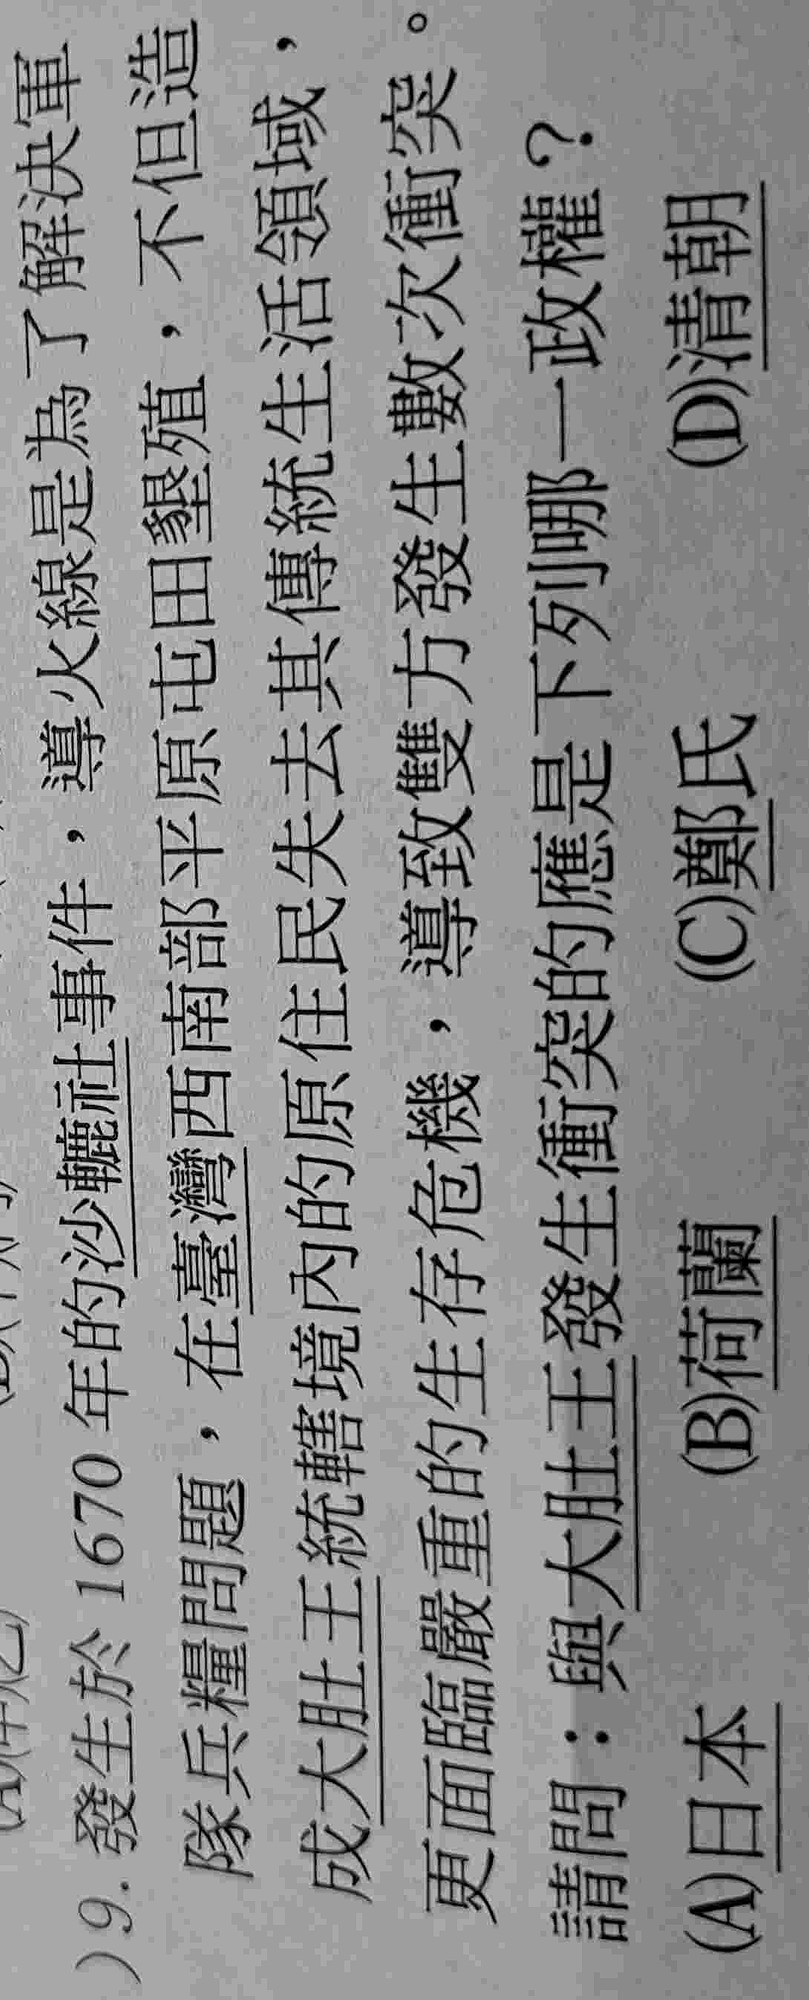 )9. 發生於 1670 年的沙轆社事件，導火線是為了解決軍
隊兵糧問題，在臺灣西南部平原屯田墾殖，不但造
成大肚王統轄境內的原住民失去其傳統生活領域，
更面臨嚴重的生存危機，導致雙方發生數次衝突。
請問：與大肚王發生衝突的應是下列哪一政權？
(A)日本 (B)荷蘭 (C)鄭氏 (D)清朝